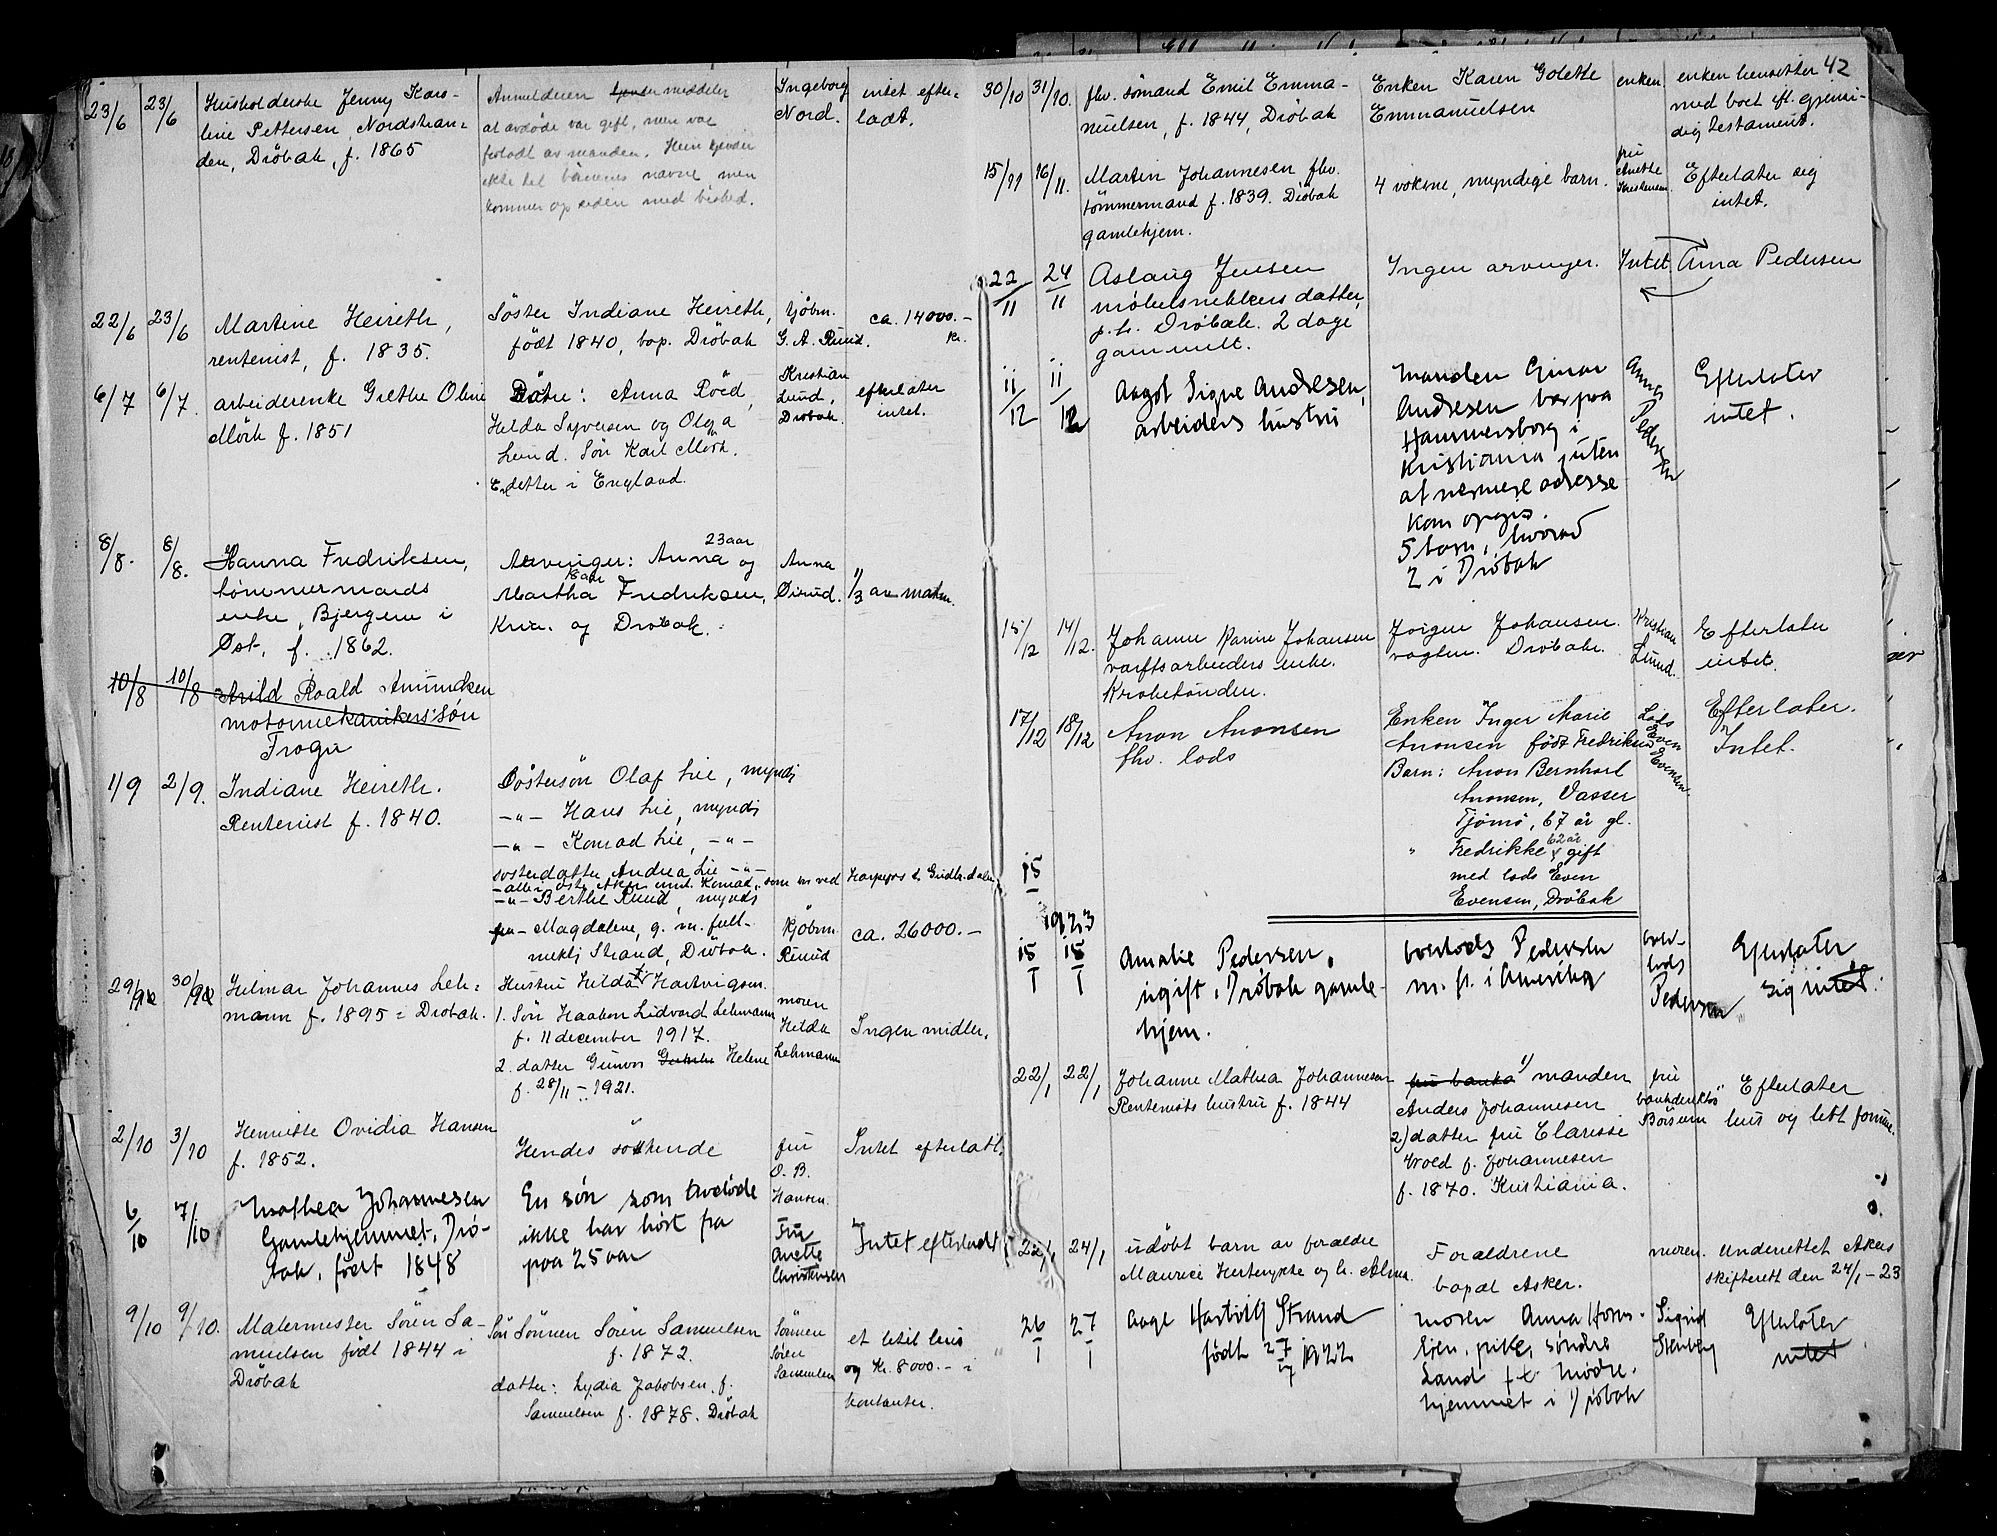 23/6 23/6 Husholderske Jenny Karo-
line Pettersen Nordstran-
den, Dröbak, f. 1865
Anmelderen meddeler
at avdöde var gift, men var
forladt av manden. Hun kjender
ikke til barnenes navne men
kommer op siden med besked.
Ingeborg
Nord.
intet efter-
ladt.
22/6 23/6 Martine Heireth,
rentenist, f. 1835.
Söster Indiane Heireth,
född 1840, bop. Dröbak
kjöbm.
G. A. Ruud.
ca. 14000.-
kr.
6/7 6/7. arbeiderenke Grethe Oline
Mörk f. 1851
Döttre: Anna Röed,
Helda Syversen og Olga
Lund. Sön Karl Mörk.
datter i England.
Kristian
Lund,
Dröbak.
efterlater
intet.
8/8. 8/8. Hanna Fredriksen,
tömmermands
enke, Bjergene i
Øst. f. 1862.
23 aar
Arvinger: Anna og
18 aar
Martha Fredriksen,
Kria. og Dröbak.
Anna
Øirud.
1/3 av matrn.
10/8 10/8 Arild Roald Amundsen
motormekanikers sön
Frogn
1/9 2/9. Indiane Heireth.
Rentenist f. 1840.
Sösterson Olaf Lie, myndig
-"- Hans Lie, myndig
-"- Konrad Lie, -"-
sosterdatter Andrea Lie -"-
-alle i östre Aker unt. Konrad, som er ved Harpefos st. Gudbr.dalen
-"- Berthe Ruud, myndig
-"- Magdalene, g. m. full-
mekti Strand, Dröbak.
Kjöbm.
Ruud
ca. 26000.-
29/9 30/9 Hilmar Johannes Leh-
mann f. 1895 = Drobak.
Hustru Hilda f. Hartvigsen.
1. Sön Haakon Lidvard Lehmann
f. 11 december 1917.
2. datter Gunvor Helene
f. 28/11 - 1921.
moren
Hilda
Lehmann
Ingen midler.
2/10 3/10 Henriette Ovidia Hansen
f. 1852.
Hendes söskende
fru
O. B.
Hansen.
Intet efterlatt.
6/10 7/10 Mathea Johannesen
Gamlehjemmet, Drö-
bak, född 1848
En søn som avdøde
ikke har hørt fra
paa 25 aar
Fru
Anette
Christensen
Intet efterladt
9/10 9/10. Malermester Sören Sa-
muelsen född 1844 i
Dröbak
Sön Sönnen Sören Samuelsen
f. 1872.
datter: Lydia Jakobsen f.
Samuelsen f. 1878. Dröbak
Sönnen
Sören
Samuelsen
et litet hus
og Kr. 8000.- i
kontanter.
42
30/10 31/10. fhv. sömand Emil Emma-
nuelsen, f. 1844, Dröbak
Enken Karen Golette
Emmanuelsen
enken
enken hensitter
med boet ifl. gjensi-
dig testament.
15/11 16/11. Martin Johannesen fhv.
tömmermand f. 1839. Dröbak
gamlehjem.
4 voksne, myndige barn.
fru
Anette
Kristensen
Efterlater sig
intet.
22/11 24/11 Aslaug Jensen
möbelsnekkers datter,
p.t. Dröbak. 2 dage
gammelt.
Ingen arvinger.
Intet
Anna Pedersen
11/12 11/12 Aagot Signe Andresen,
arbeiders hustru
Manden Einar
Andresen bor paa
Hammersborg i
Kristiania, uten
at nermere adresse
kan opgis.
5 barn, hvorav
2 i Drøbak
Anna
Pedersen
Efterlater
intet.
15/12 14/12. Johanne Karine Johansen
varftsarbeiders enke.
Kroketönden.
Jörgen Johansen.
vagtm. Dröbak.
Kristian
Lund.
Efterlater
intet.
17/12 18/12 Anon Anonsen
fhv. lods
Enken Inger Marie
Anonsen född Fredriksen
Barn: Anon Bernhard
Anonsen, Vasser
Tjömö, 67 år gl.
62 år
" Fredrikke gift
med lods Even
Evensen, Dröbak
Lods
Even
Evensen.
Efterlater.
Intet.
15
1923
15/1 15/1 Amalie Pedersen,
ugift, Drøbak gamle-
hjem.
overlods Pedersen
m. fl. i Amerika
over-
lods
Pedersen
Efterlater
sig intet.
22/1 22/1 Johanne Mathea Johannesen
Rentenists hustru f. 1844
1) manden
Anders Johannesen
2) datter fru Clarisse
Wroed f. Johannesen
f. 1870. Kristiania.
fru
bankdirektör
Börsum
Efterlater
hus og litt formue.
22/1 24/1 udöbt barn av foraldre
Foraldrene
bopæl Asker.
moren.
Underrettet Akers
skifterett den 24/1-23
26/1 27/1 Aage Hartvig Strand
født 27 1922
moren Anna Horn-
sjøndre
Land p.t. Mødre-
hjemmet i Drøbak
Sigrid
Stenberg
Efterlater
intet